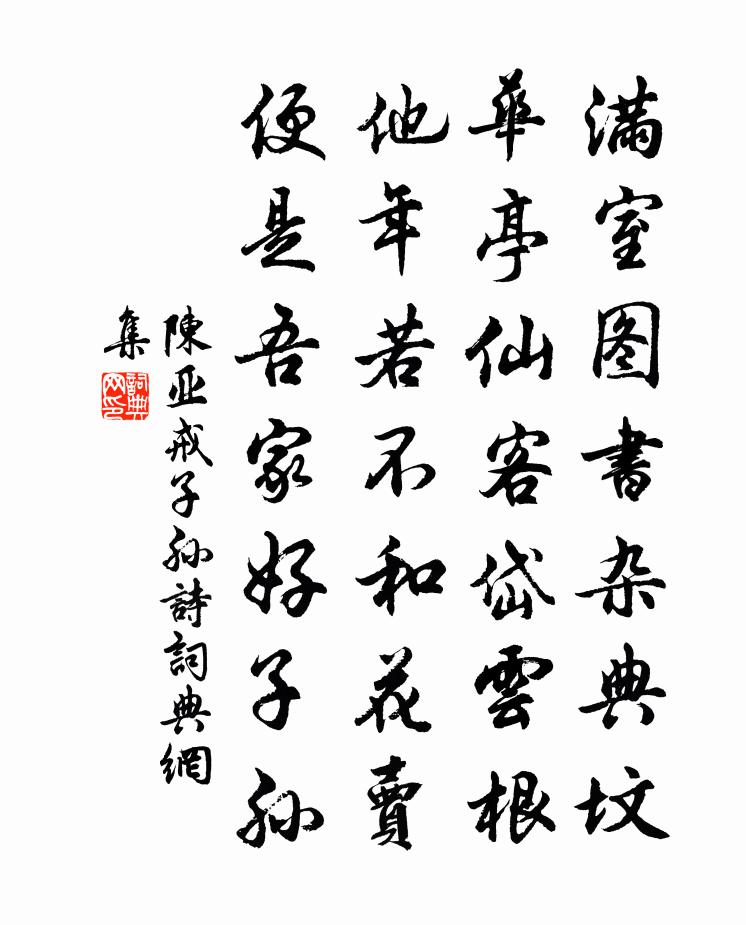 滿室图書杂典坟
華亭仙客岱雲根
他年若不和花賣
便是吾家好子孫
陳亚戒子孫詩詞典網
集
詞典网印